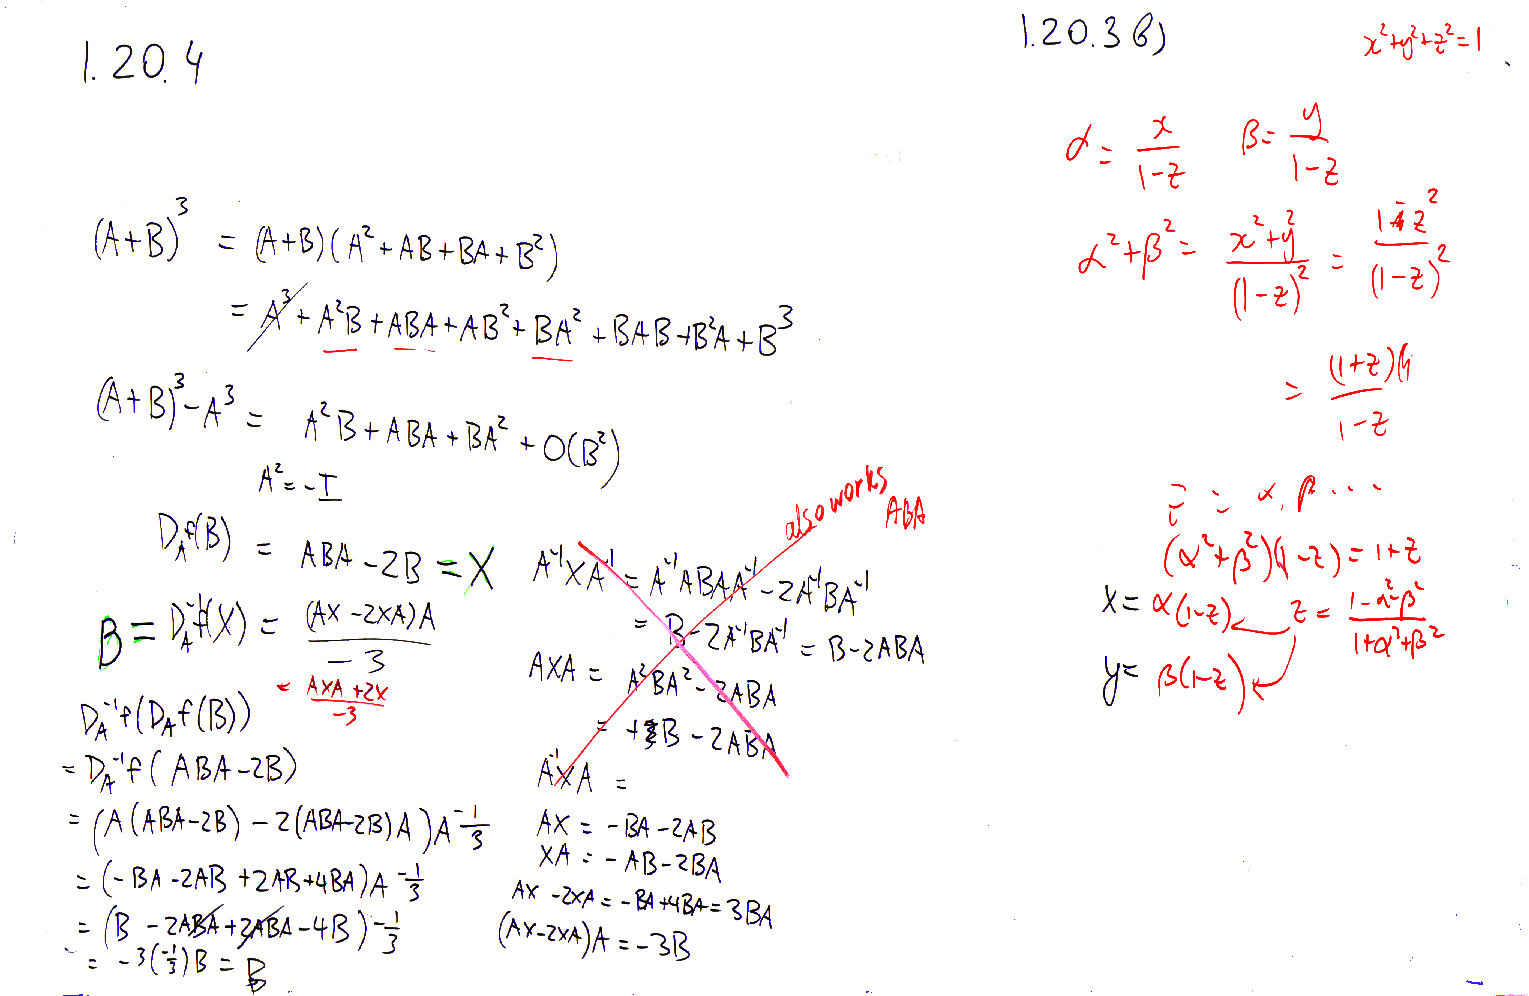 1.20.4
(A+B)³ = (A+B)(A²+AB+BA+B²)
= A³+A²B+ABA+AB²+BA²+BAB+B²A+B³
(A+B)³-A³ = A²B+ABA+BA²+O(B²)
A²=-I
D_A f(B) = ABA-2B = X
B = D_A⁻¹f(X) = (AX-2XA)A / -3
= AXA+2X / -3
D_A⁻¹f(D_A f(B))
= D_A⁻¹f(ABA-2B)
= (A(ABA-2B)-2(ABA-2B)A)A -1/3
= (-BA-2AB+2AB+4BA)A -1/3
= (B-2ABA+2ABA-4B) -1/3
= -3(-1/3)B = B
also works
ABA
A⁻¹XA⁻¹ = A⁻¹ABAA⁻¹-2A⁻¹BA⁻¹
= B-2A⁻¹BA⁻¹ = B-2ABA
AXA = A²BA²-2ABA
= +B-2ABA
A⁻¹XA =
AX = -BA-2AB
XA = -AB-2BA
AX-2XA = -BA+4BA = 3BA
(AX-2XA)A = -3B
1.20.3 b)
x²+y²+z²=1
α = x / 1-z β = y / 1-z
α²+β² = x²+y² / (1-z)² = 1-z² / (1-z)²
= (1+z)( / 1-z
z = α, β ...
(α²+β²)(1-z) = 1+z
x = α(1-z) z = 1-α²-β² / 1+α²+β²
y = β(1-z)